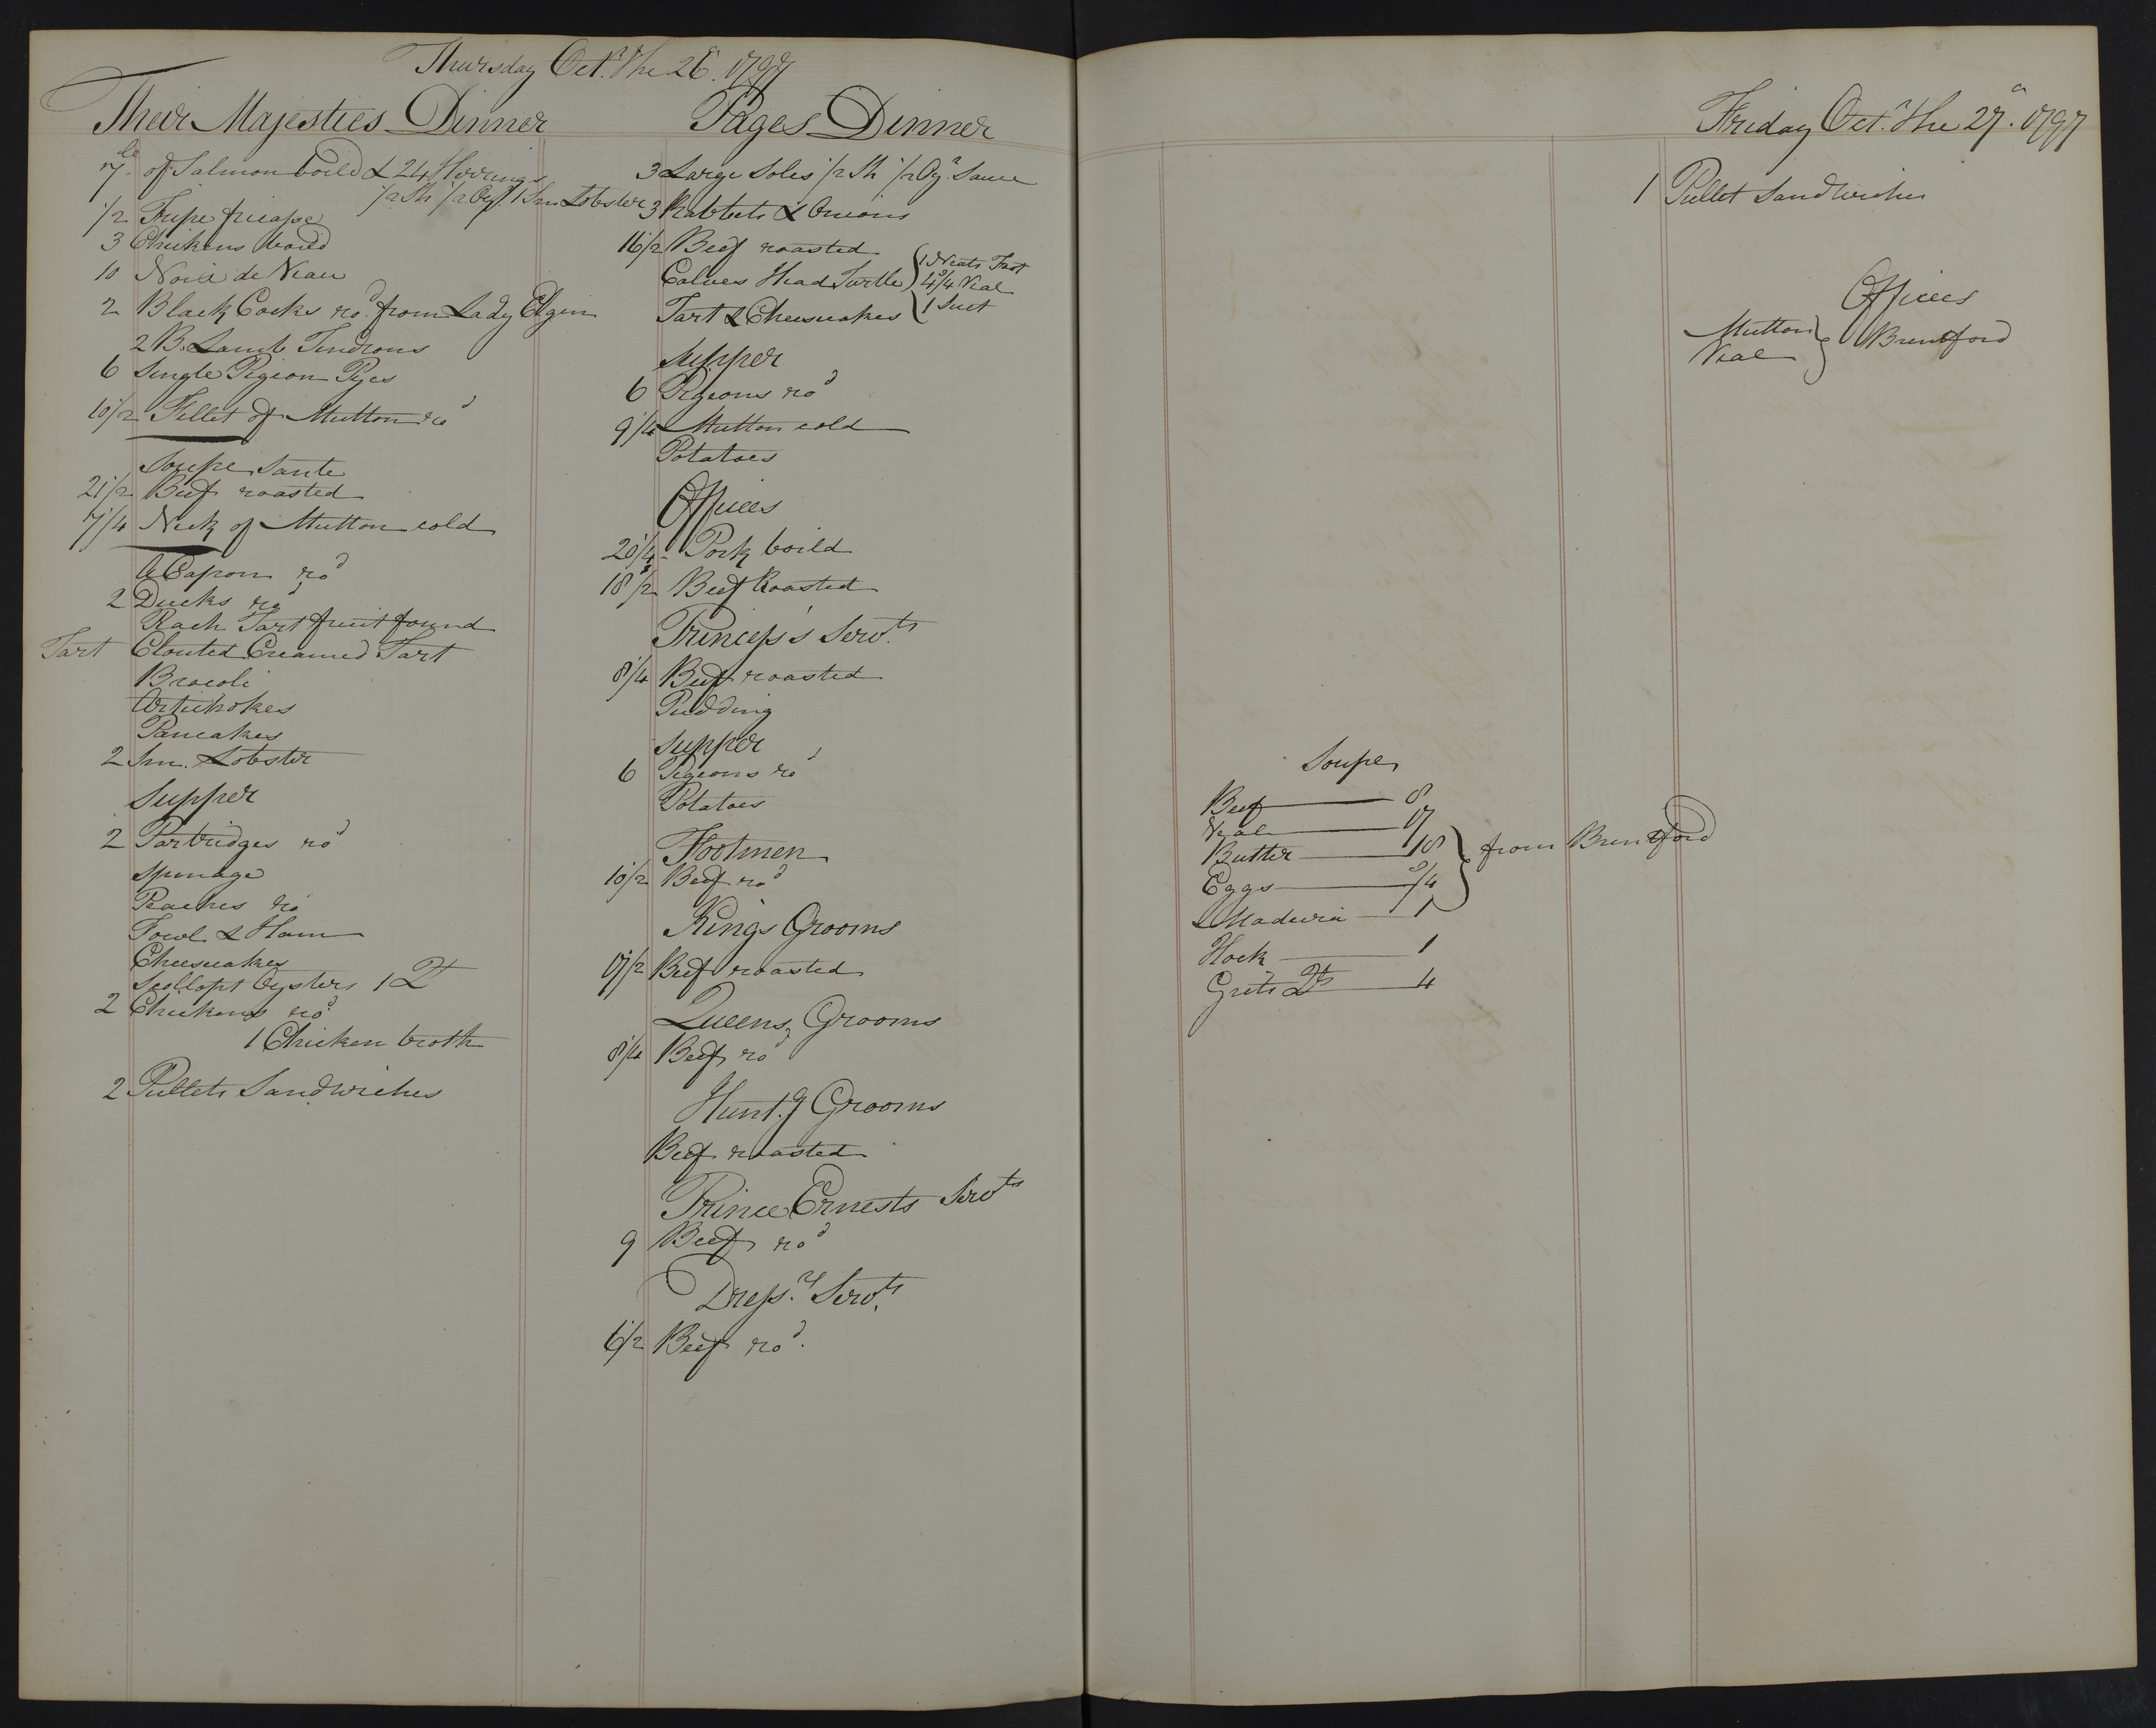 Thursday Oct.r the 26.o 1797
Their Majesties Dinner
7 lb of Salmon boild & 24 Herrings
1/2 Sh 1/2 Oys.r 1 Sm Lobster
1/2 Tripe fricasse
3 Chickens boild
10 Noix de Veau
2 Black Cocks ro.d from Lady Elgin
2 B. Lamb Tendrons
6 Single Pigeon Pyes
10 1/2 Fillet of Mutton ro.d
Soupe Sante
21 1/2 Beef roasted
7 1/4 Neck of Mutton cold
A Capon ro.d
2 Ducks ro.d
Rach Tart fruit found
Tart Clouted Creamed Tart
Brocoli
Artichokes
Pancakes
2 Sm. Lobster
Supper
2 Partridges ro.d
Spinage
Reaches ro.d
Fowl & Ham
Cheescakes
Scollopt Oysters 1 Q.t
2 Chickens ro.d
1 Chicken broth
2 Pullets Sandwiches
Pages Dinner
3 Large Soles 1/2 Sh 1/2 Oy.r Sauce
3 Rabbets & Onions
16 1/2 Beef roasted
Calves Head Turtle { 1 Neats Foot
4 3/4 Veal
Tart & Cheescakes 1 Suet
Supper
6 Pigeons ro.d
9 1/4 Mutton cold
Potatoes
Offices
20 1/4 Pork boild
18 1/2 Beef Roasted
Princess's Serv.ts
8 1/4 Beef roasted
Pudding
Supper
6 Pigeons ro.d
Potatoes
Footmen
10 1/2 Beef ro.d
Kings Grooms
17 1/2 Beef roasted
Queens Grooms
8 1/4 Beef ro.d
Hunt.g Grooms
Beef roasted
Prince Ernests Serv.ts
9 Beef ro.d
Dress.rs Serv.ts
6 1/2 Beef ro.d
Friday Oct.r the 27.o 1797
1 Pullet Sandwiches
Offices
Mutton } Brentford
Veal
Soupe
Beef — 8
Veal — 17
Butter — 18 } from Brentford
Eggs — 2/4
Madeira — 1
Hock — 1
Grits Q.ts — 4